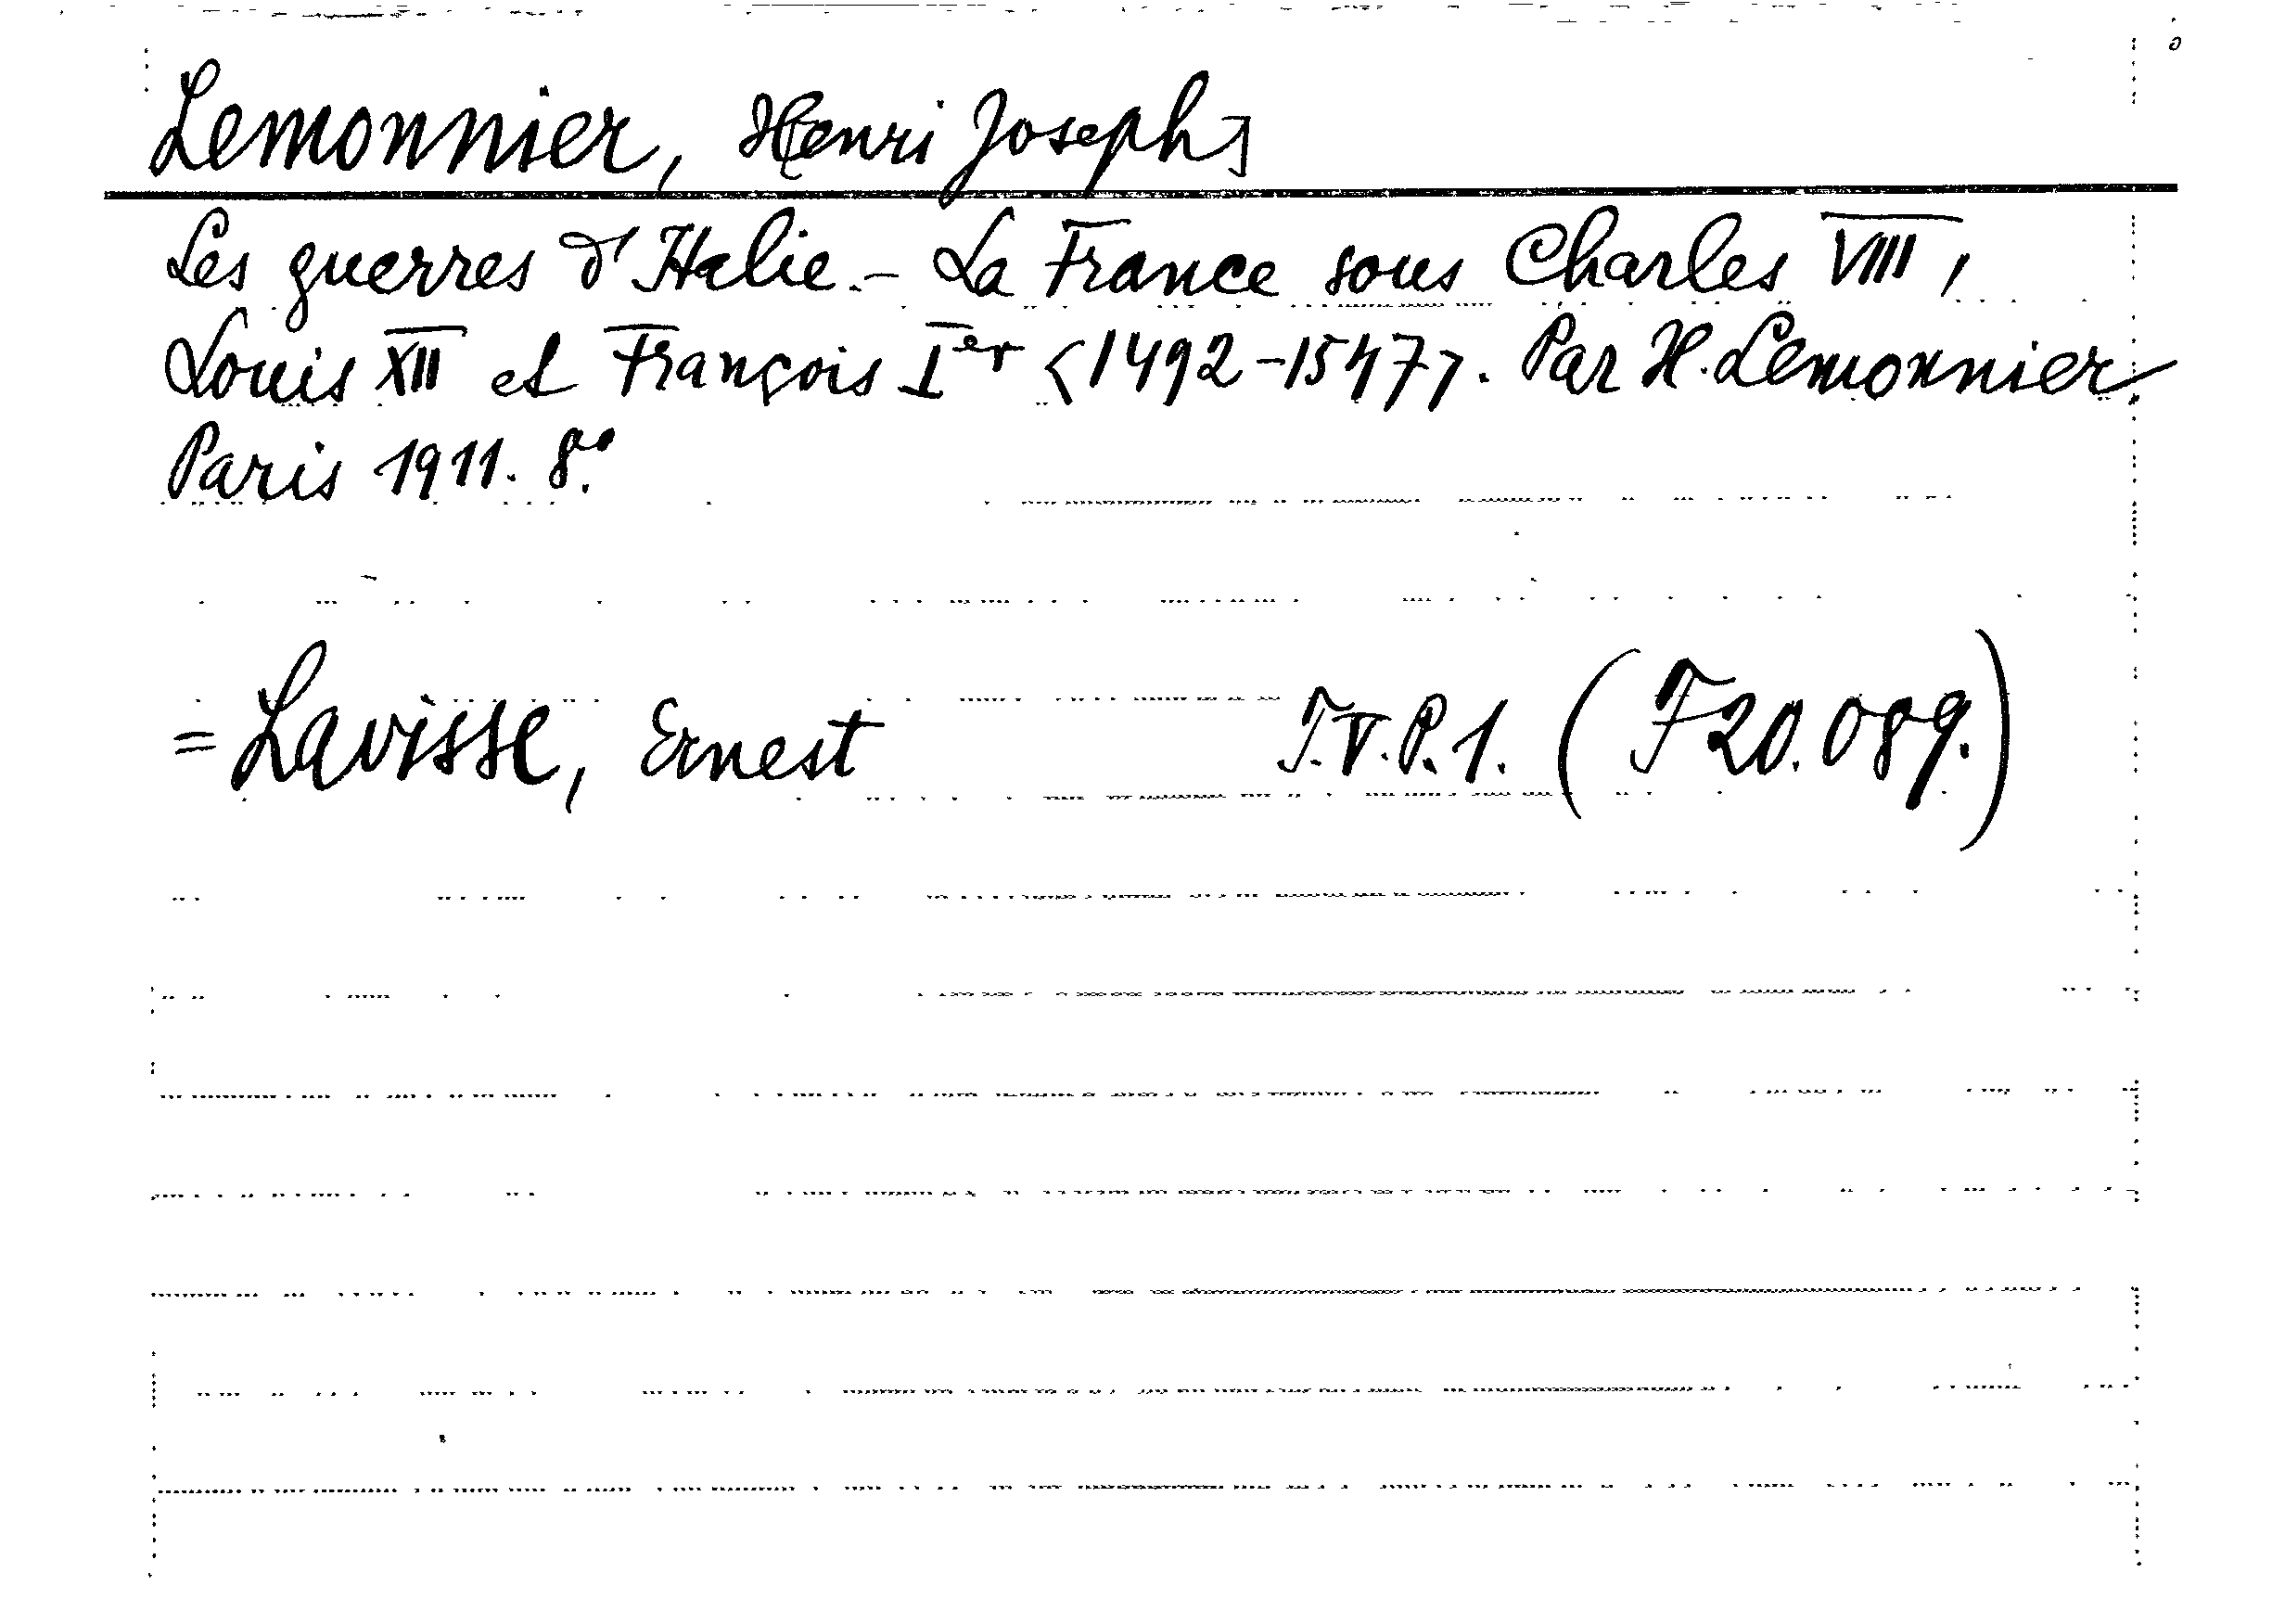 Lemonnier, H[enri Joseph]
Les guerres d'Italie.- La France sous Charles VIII,
Louis XII et François Ier <1492-1547>. Par H. Lemonnier
Paris 1911. 8°.
= Lavisse, Ernest T.V.P.1. (F20.089.)